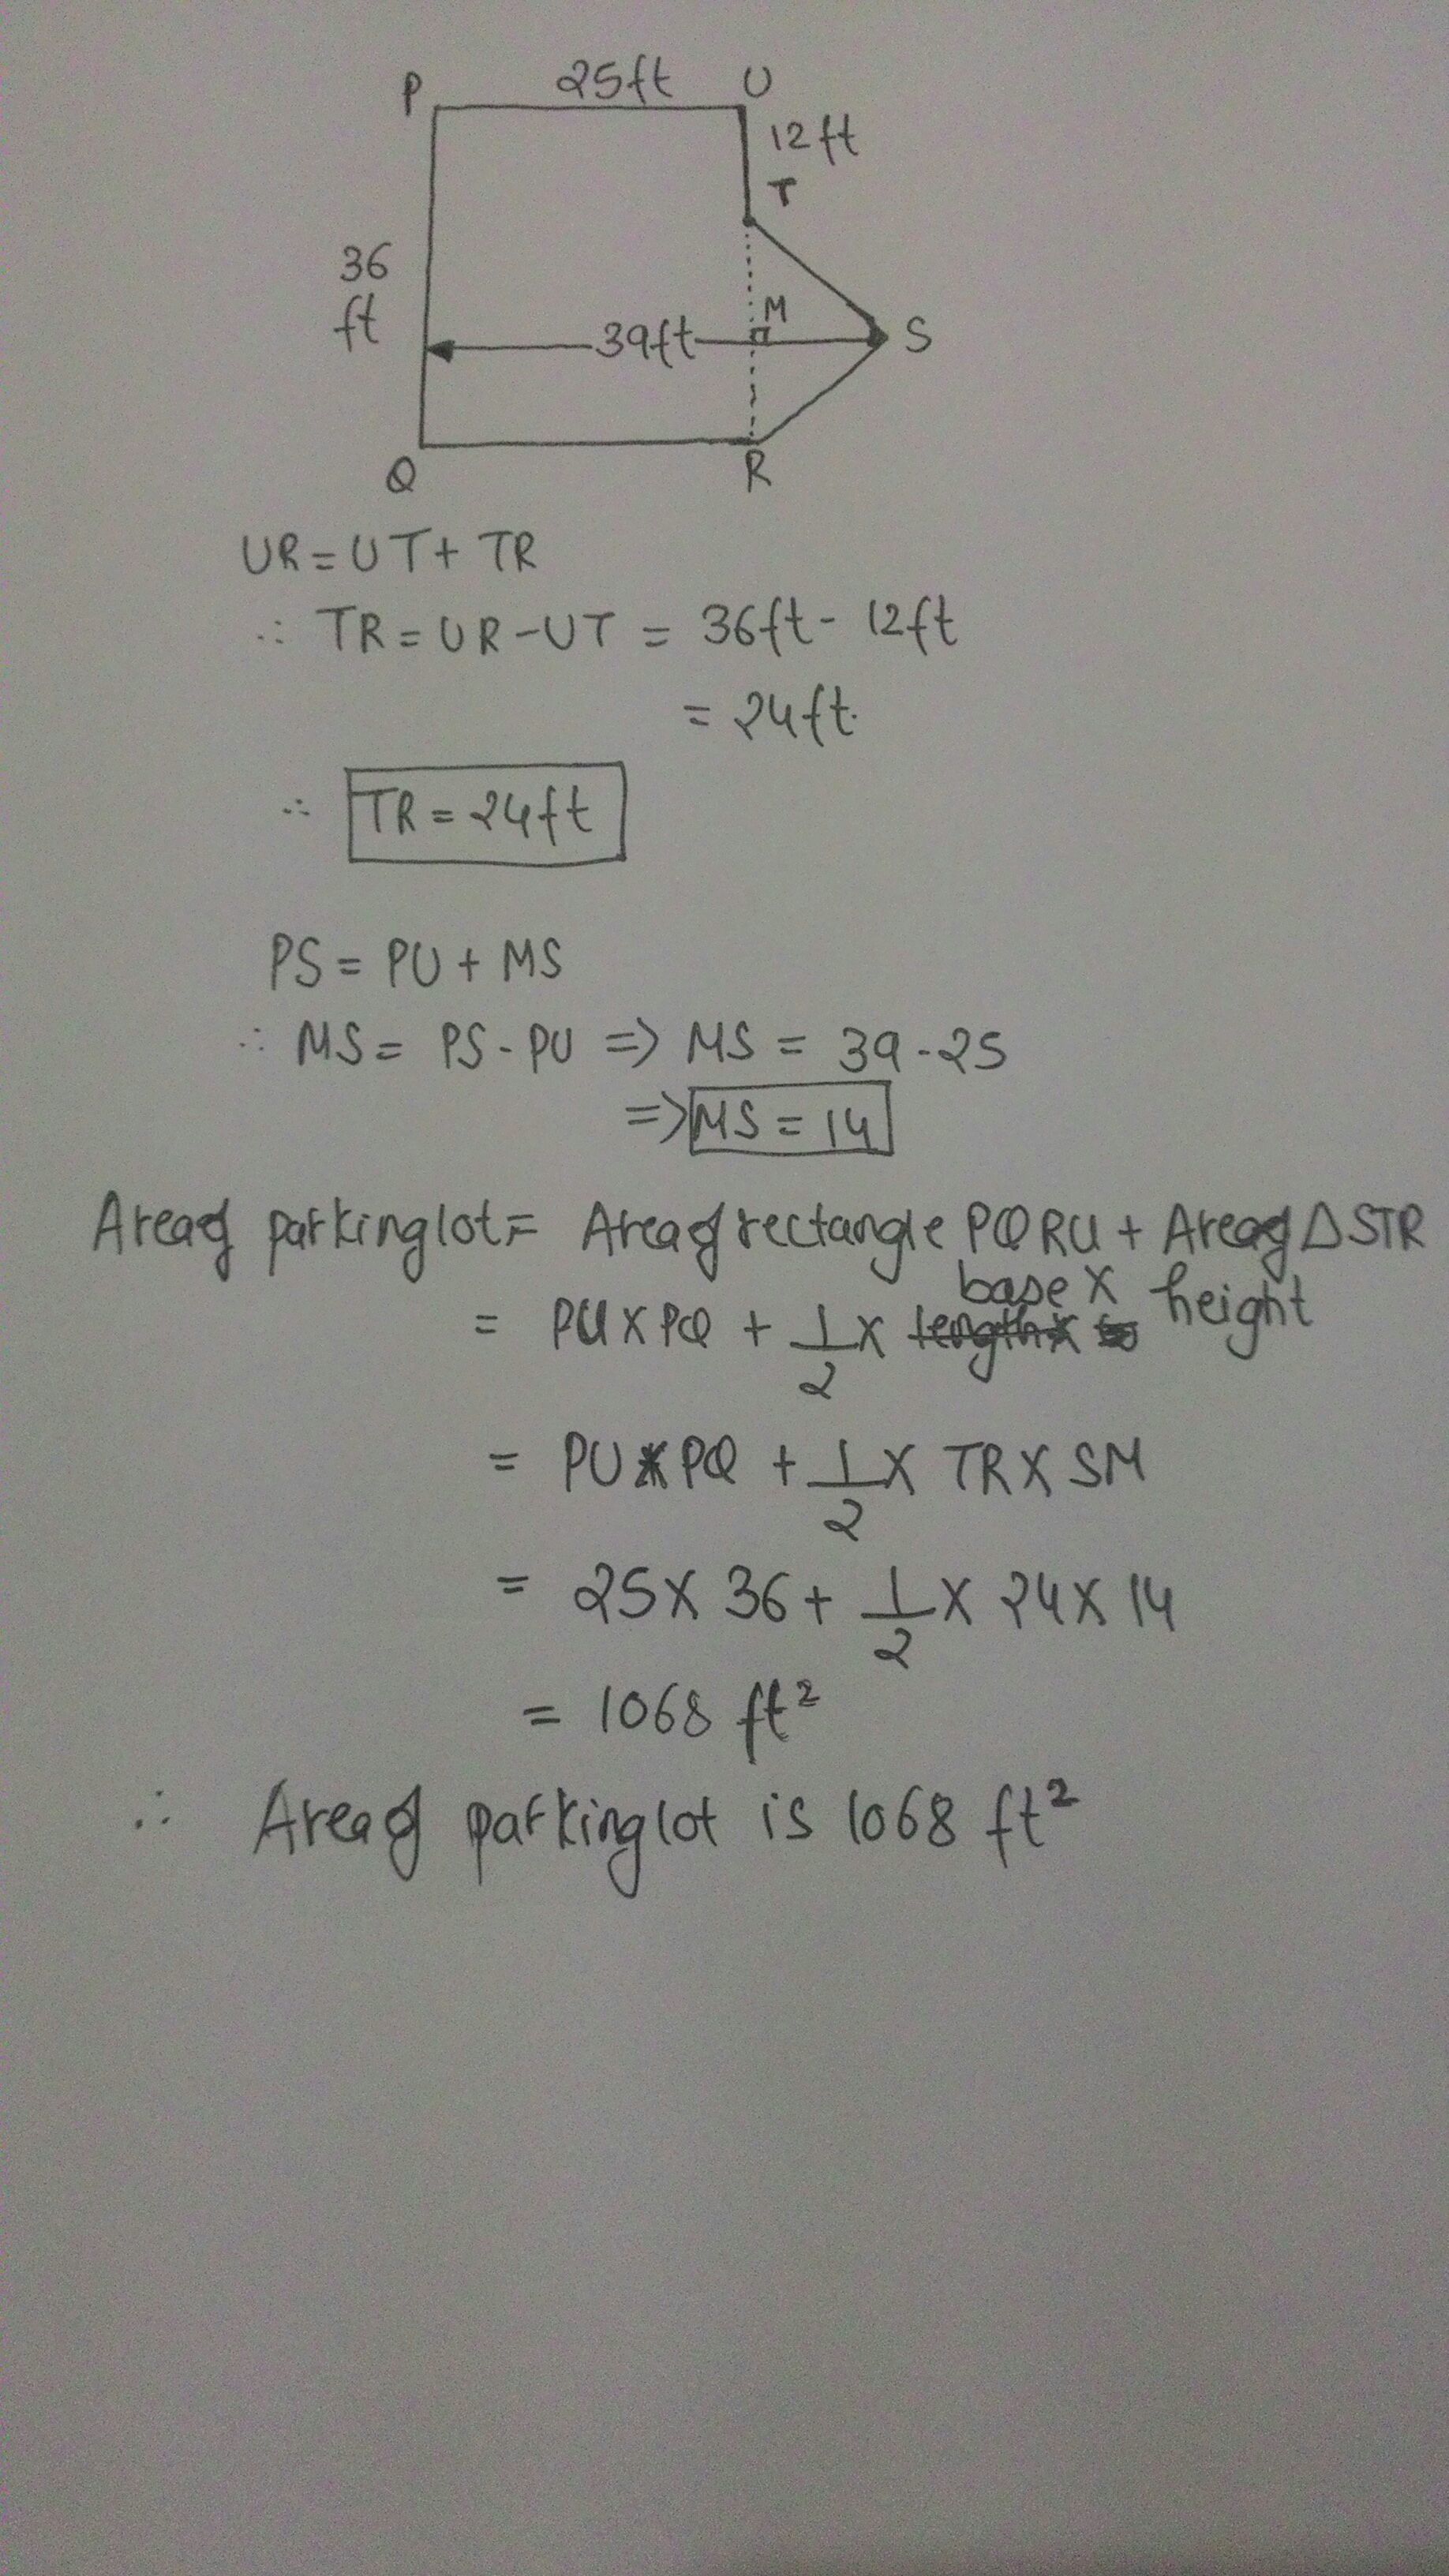 P 25ft U
12ft
T
36
ft
M
39ft S
Q R
UR = UT + TR
∴ TR = UR - UT = 36ft - 12ft
= 24ft.
∴ TR = 24ft
PS = PU + MS
∴ MS = PS - PU => MS = 39 - 25
=> MS = 14
Area of parking lot = Area of rectangle PQRU + Area of Δ STR
= PU X PQ + 1/2 X base X height
= PU X PQ + 1/2 X TR X SM
= 25 X 36 + 1/2 X 24 X 14
= 1068 ft²
∴ Area of parking lot is 1068 ft²